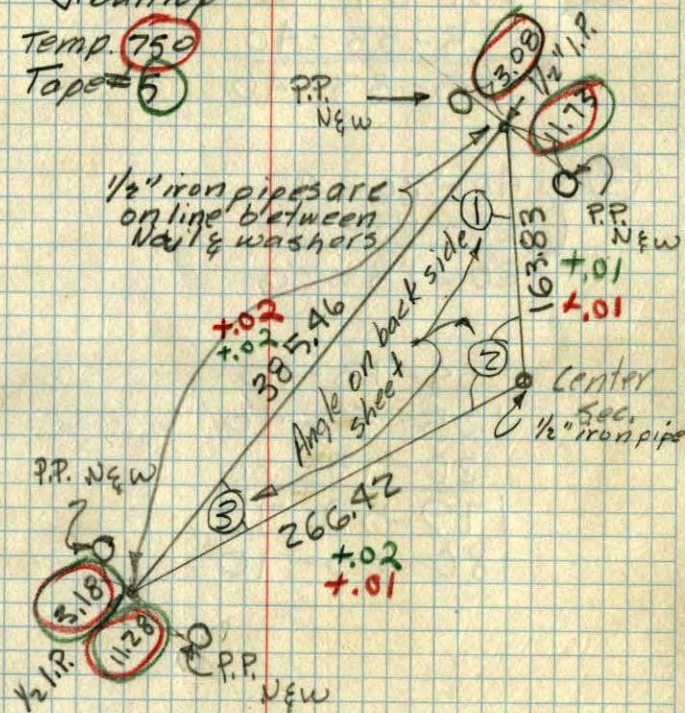 Temp. 75°
Tape = 5
3.08
1/2" I.P.
P.P.
N&W
11.73
1/2" iron pipes are
on line between
Nail & washers
1
P.P.
N&W
163.83
+.01
+.01
+.02
+.02
385.46
Angle on back side
sheet
2
Center
Sec.
1/2" iron pipe
P.P. N&W
3
266.42
+.02
+.01
3.18
11.28
1/2 I.P.
P.P.
N&W